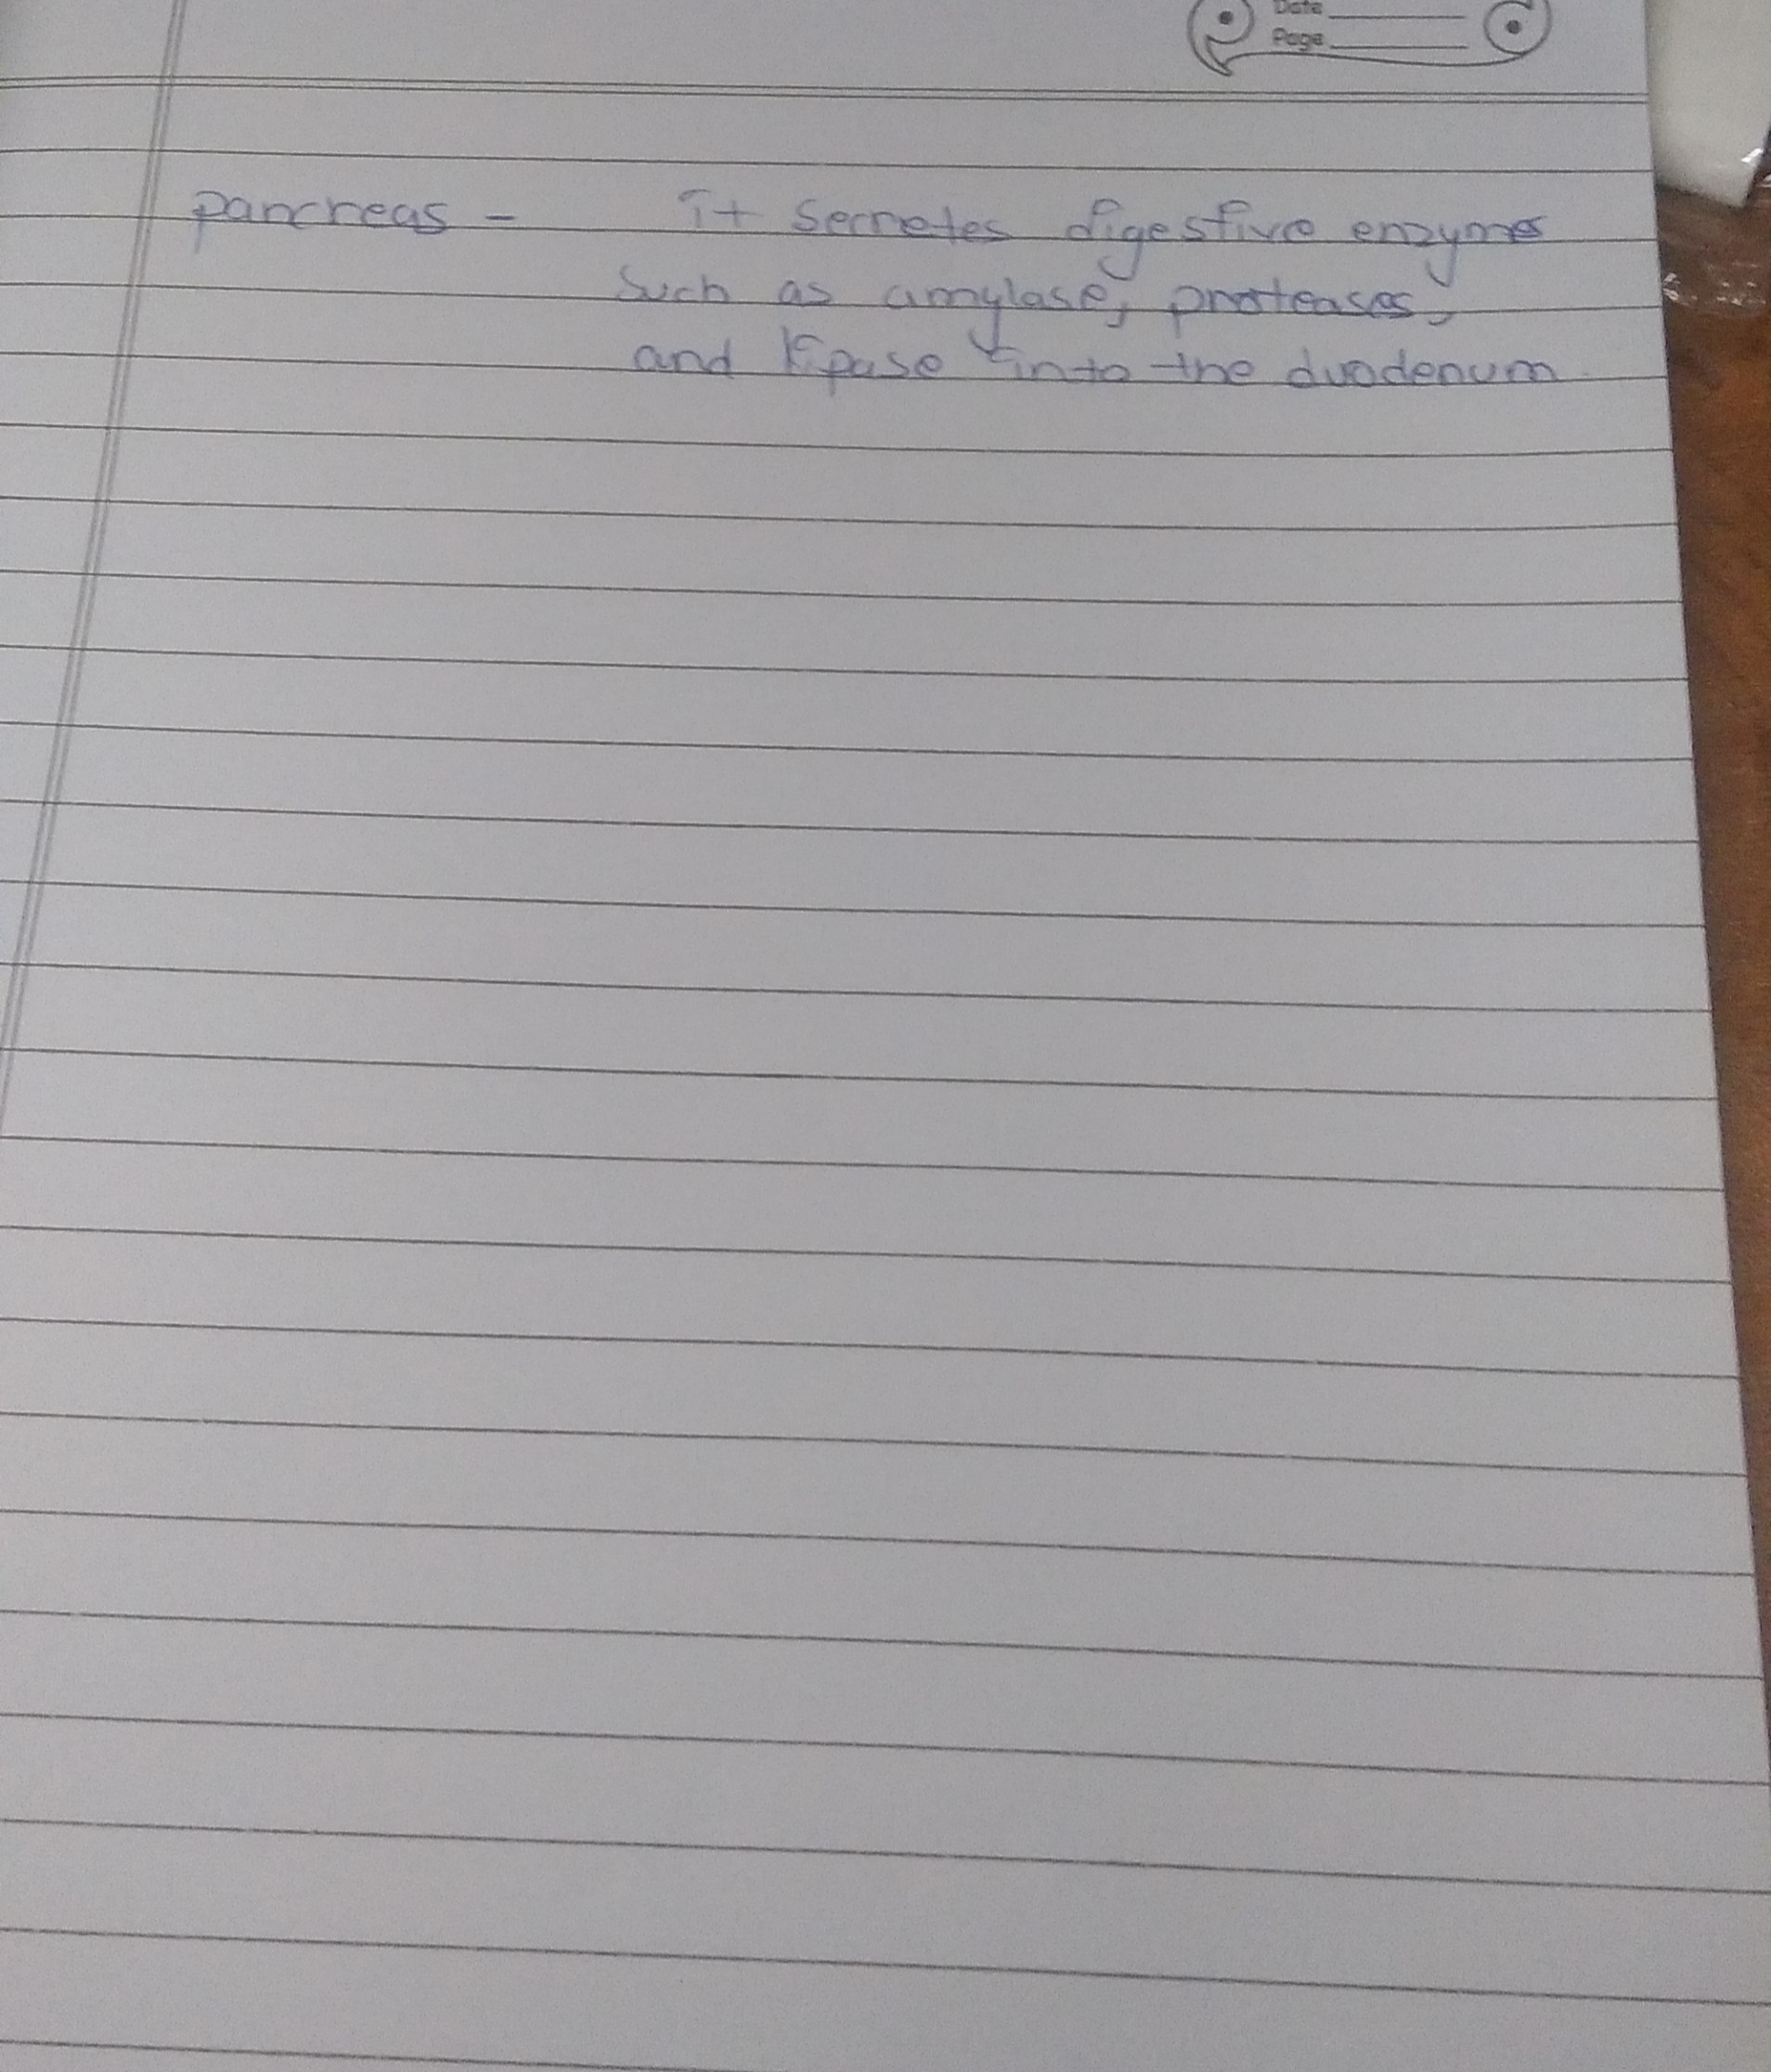 Date
Page
pancreas - it secretes digestive enzymes
such as amylase, proteases,
and lipase into the duodenum